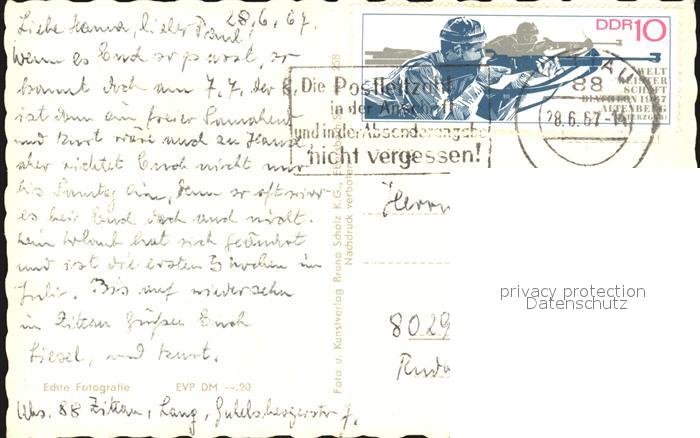 28.6.67.
Liebe Hanna, lieber Paul!
Wenn es Euch so passt, so
kommt doch am 7.7. der
ist dann ein freier Sonnabend
und Kurt wäre auch zu Hause
aber richtet Euch nicht nur
bis Sonntag ein, denn so oft seid
es bei Euch doch auch nicht.
Mein Urlaub hat sich geändert
und ist die ersten 3 Wochen im
Juli. Bis auf wiedersehn
in Zittau Grüßen Euch
Liesel, und Kurt.
Echte Fotografie EVP DM --.20
Abs. 88 Zittau, Lang,
Foto u. Kunstverlag Bruno Scholz K.G.
Nachdruck verboten
DDR 10
WELT
MEISTER
SCHAFT
BIATHLON 1967
ALTENBERG
(OSTERZGEB)
Die Postleitzahl
in der Anschrift
und in der Absenderangabe
nicht vergessen!
88
28.6.67-1
Herrn
8029
privacy protection
Datenschutz